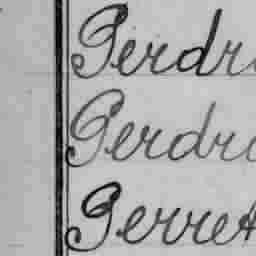 Perdri
Perdri
Perret